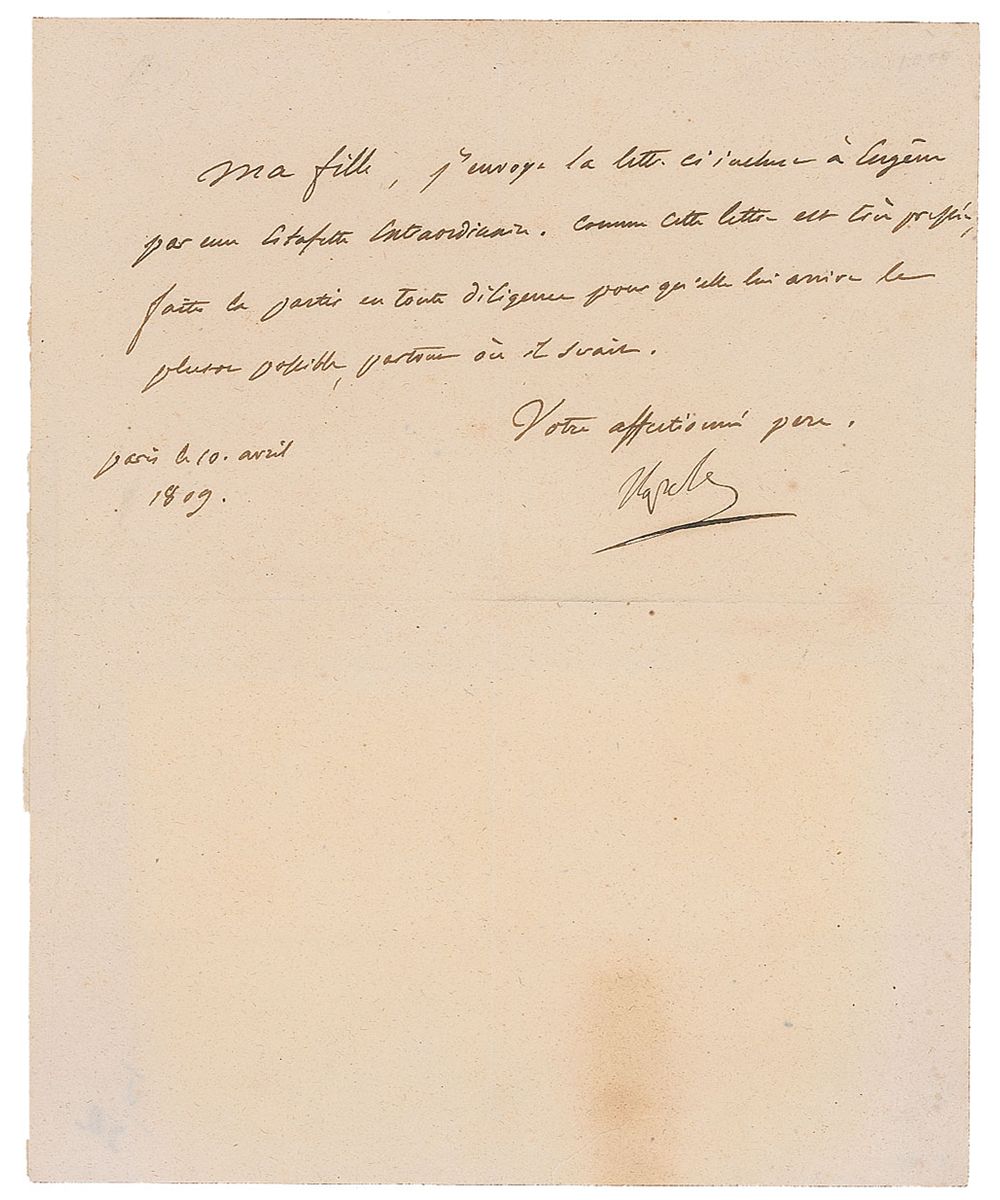 Ma fille, j'envoye la lettre ci incluse à Eugène
par une Estafette Extraordinaire. Comme cette lettre est très pressée,
faites la partir en toute diligence pour qu'elle lui arrive le
plutot possible, partout où il serait.
Votre affectionné pere.
paris le 10. avril
1809.
Napole